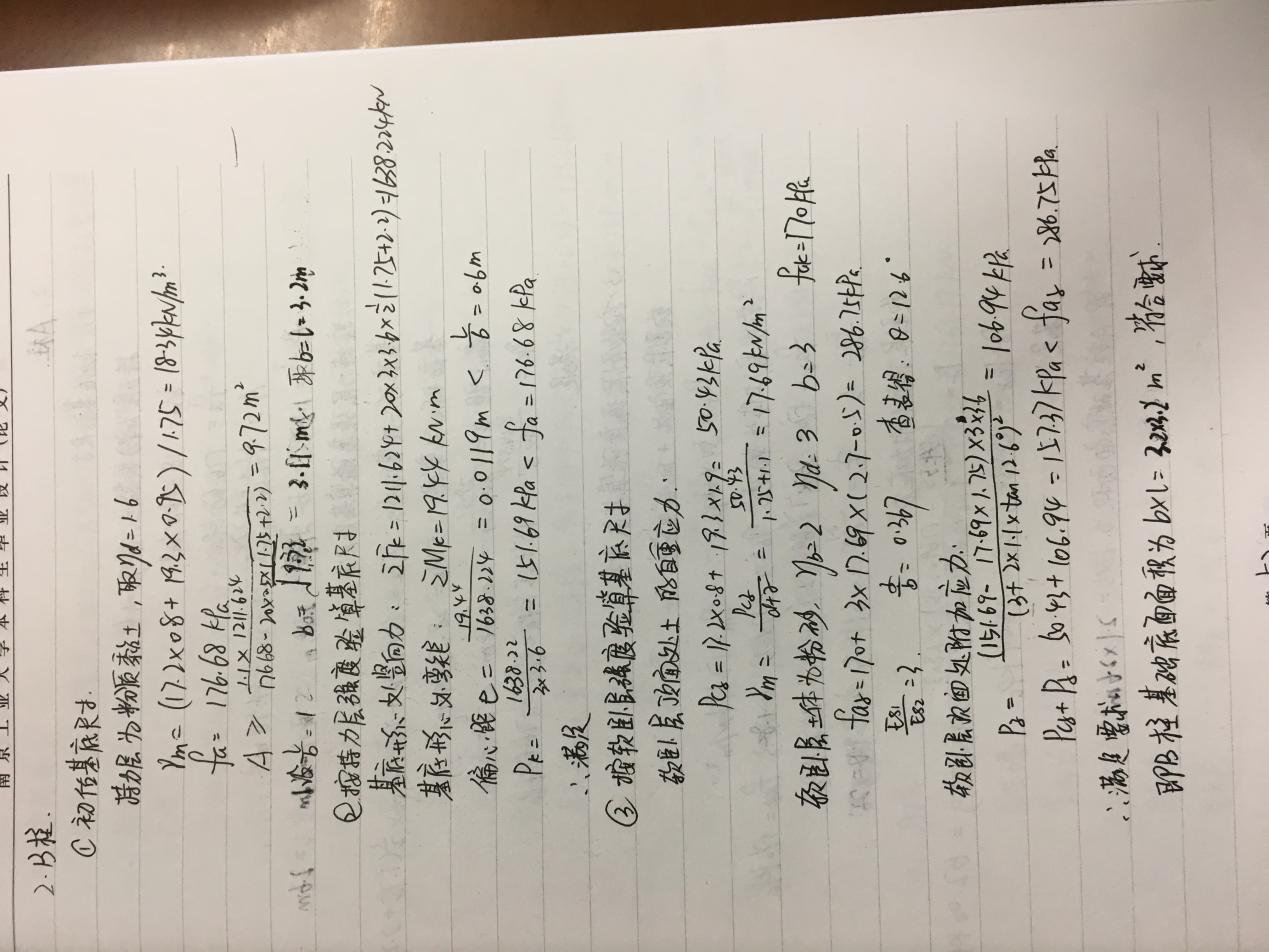 南京工业大学本科生毕业设计(论文)
2.B柱.
① 初估基底尺寸.
持力层为粉质黏土,取ηd=1.6
γm=(17.2×0.8+19.3×0.95)/1.75=18.34kN/m³.
fa= 176.68 kPa
A ≥ 1.1×1211.624/176.68-20×0.5×(1.75+2.2) = 9.72m²
取b=l=3.2m
②按持力层强度验算基底尺寸
基底形心处竖向力: ΣFk=1211.624+20×3×3.6×½(1.75+2.2)=1638.224kN
基底形心处弯矩: ΣMk=19.44 kN·m
偏心距 e= 19.44/1638.224 = 0.0119m < l/6 = 0.6m
Pk= 1638.22/3×3.6 = 151.69kPa < fa=176.68kPa
∴满足
③ 按软卧层强度验算基底尺寸
软卧层顶面处土的自重应力:
Pcz=17.2×0.8+19.3×1.9= 50.43kPa
γm= Pcz/d+z = 50.43/1.75+1.1 =17.69kN/m²
软卧层土体为粉砂, ηb=2 ηd=3 b=3 fak=170kPa
faz=170+ 3×17.69×(2.7-0.5)= 286.75kPa
Es1/Es2=3 z/b = 0.367 查表得: θ=12.6°
软卧层顶面处附加应力:
Pz= (151.69-17.69×1.75)×3×3.6/(3+2×1.1×tan12.6°)² = 106.94kPa
Pcz+Pz= 50.43+106.94=157.37kPa< faz=286.75kPa
∴满足要求
即B柱基础底面面积为b×l= 3.2×3.2 m²,符合要求.